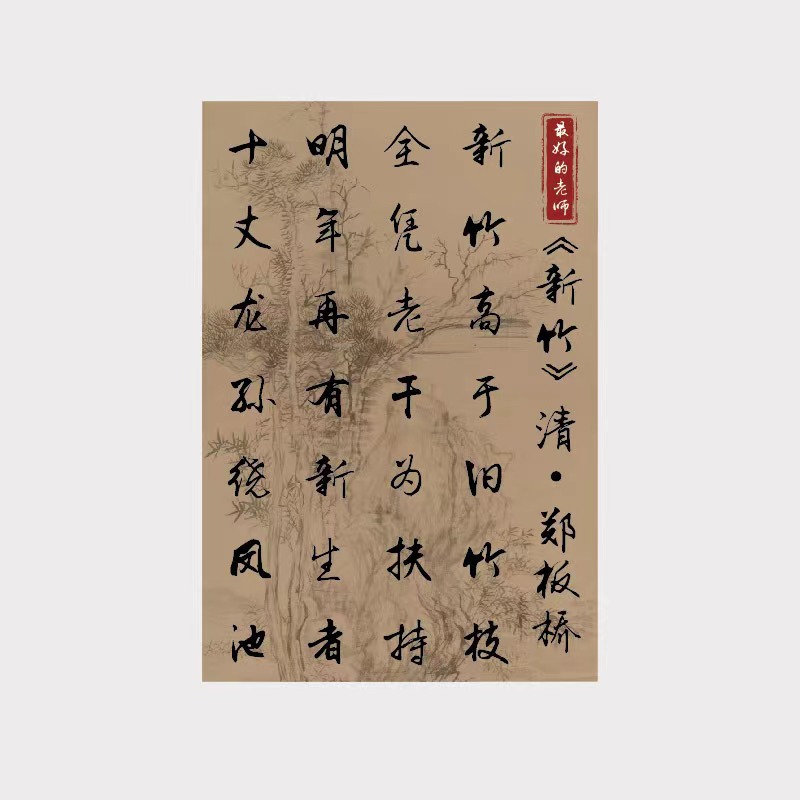 最好的老师
《新竹》清·郑板桥
新竹高于旧竹枝
全凭老干为扶持
明年再有新生者
十丈龙孙绕凤池